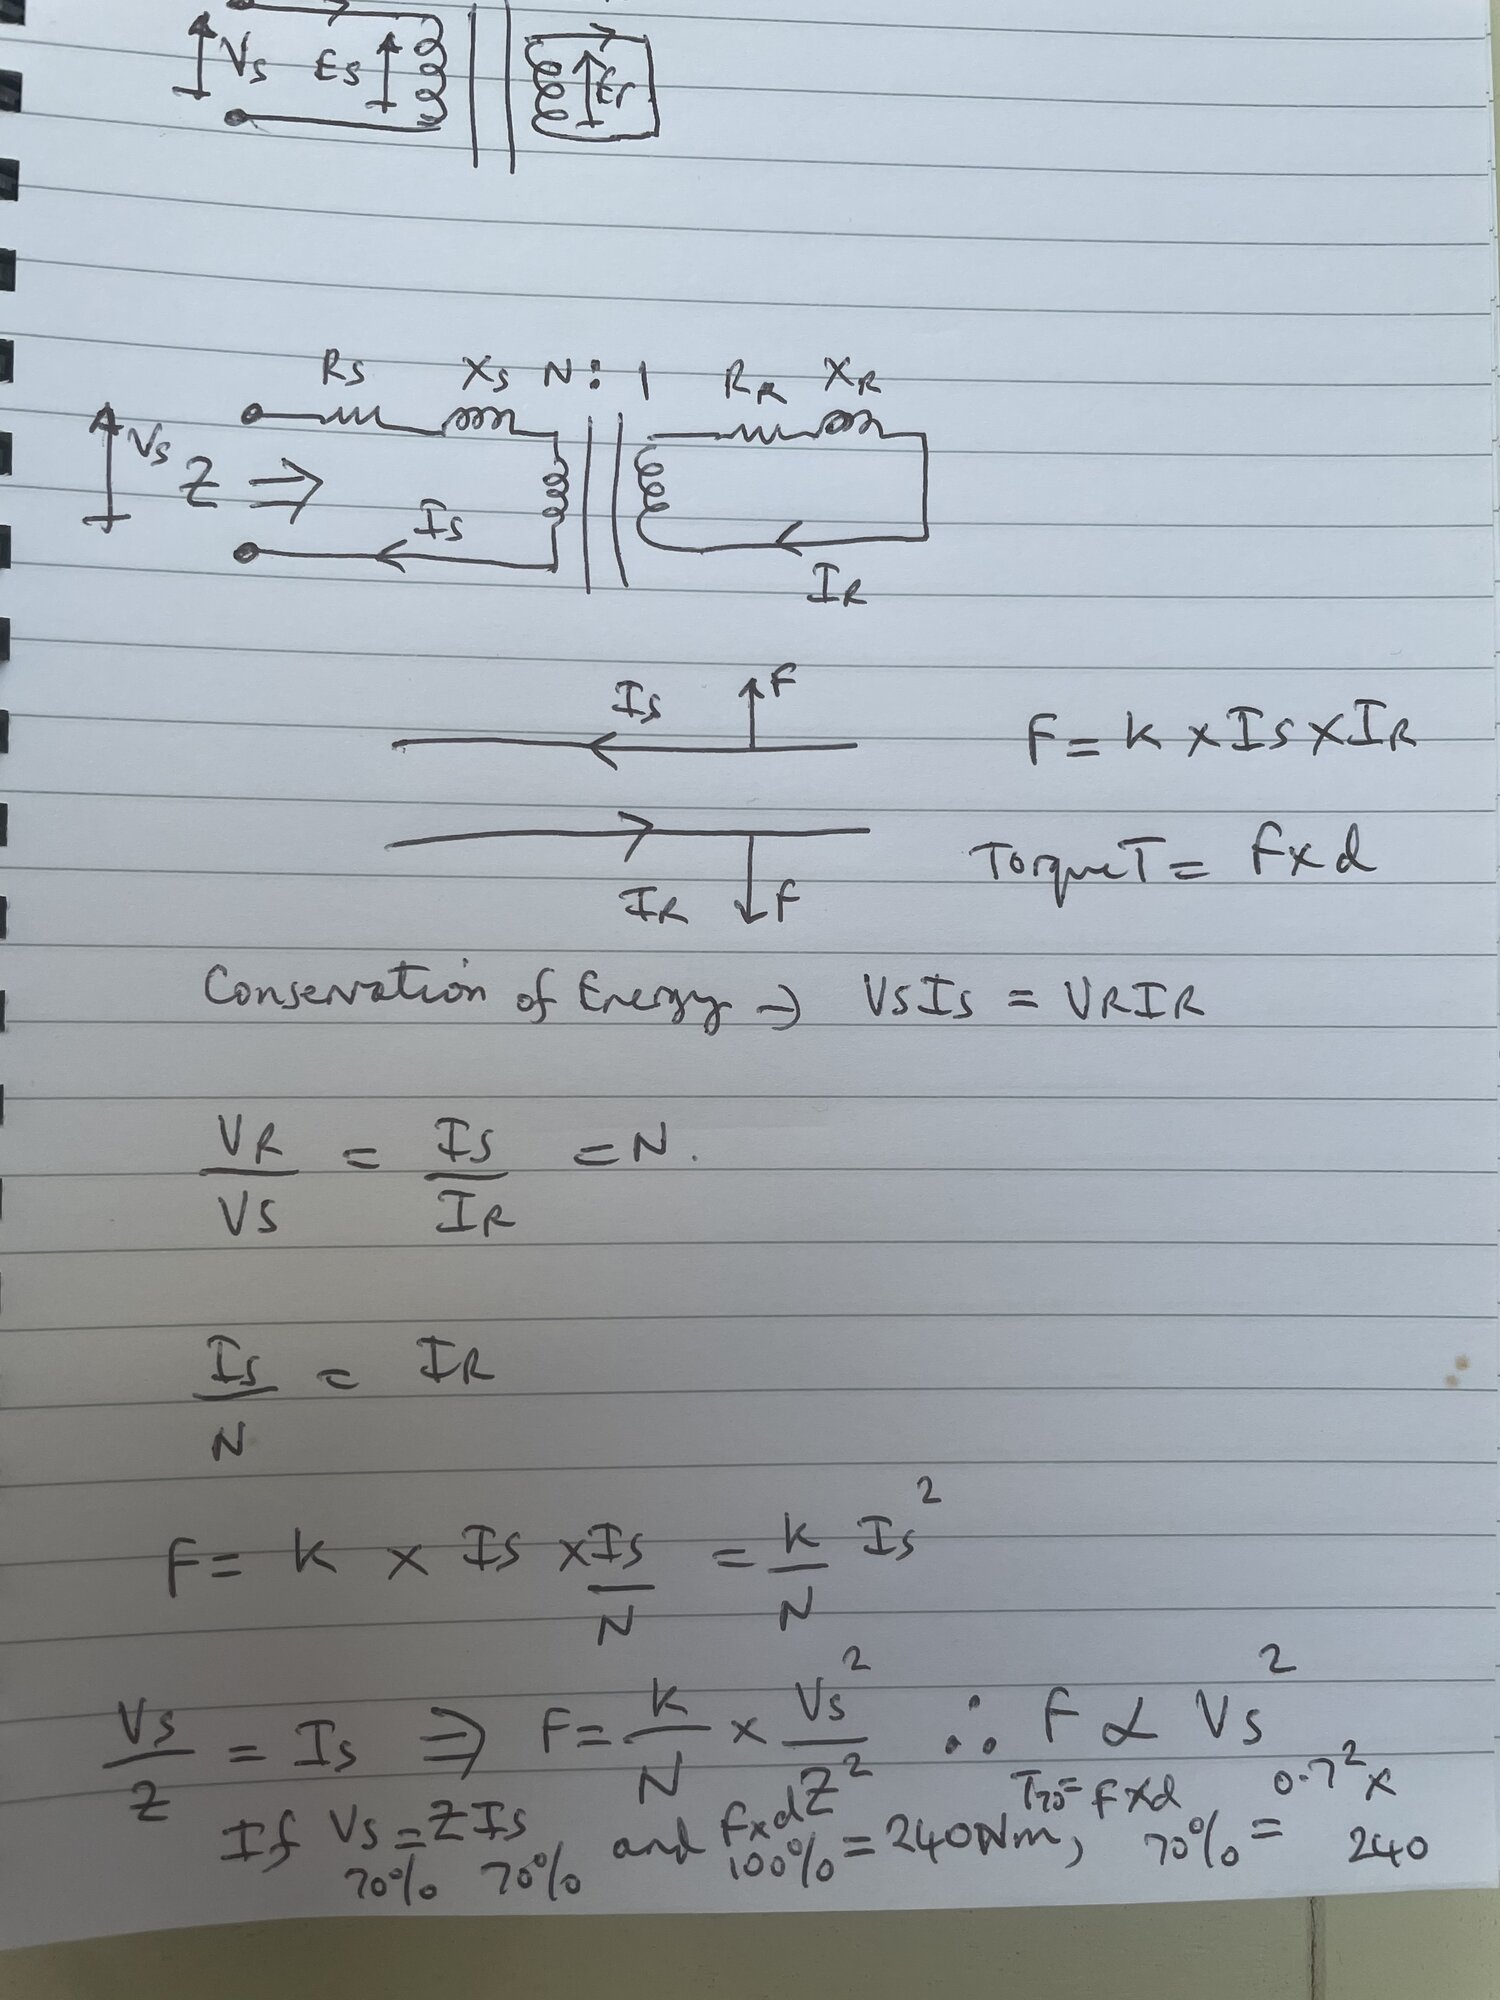 Vs Es Er
Rs Xs N : 1 RR XR
Vs Z ⇒
Is
IR
Is F
F = k x Is x IR
Torque T = F x d
IR F
Conservation of Energy → VsIs = VRIR
VR/Vs = Is/IR = N.
Is/N = IR
F = k x Is x Is/N = k/N Is²
Vs/Z = Is ⇒ F = k/N x Vs²/Z² ∴ F ∝ Vs²
If Vs 70% = Z Is 70% and Fxd 100% = 240Nm, T70 = Fxd 70% = 0.7² x 240